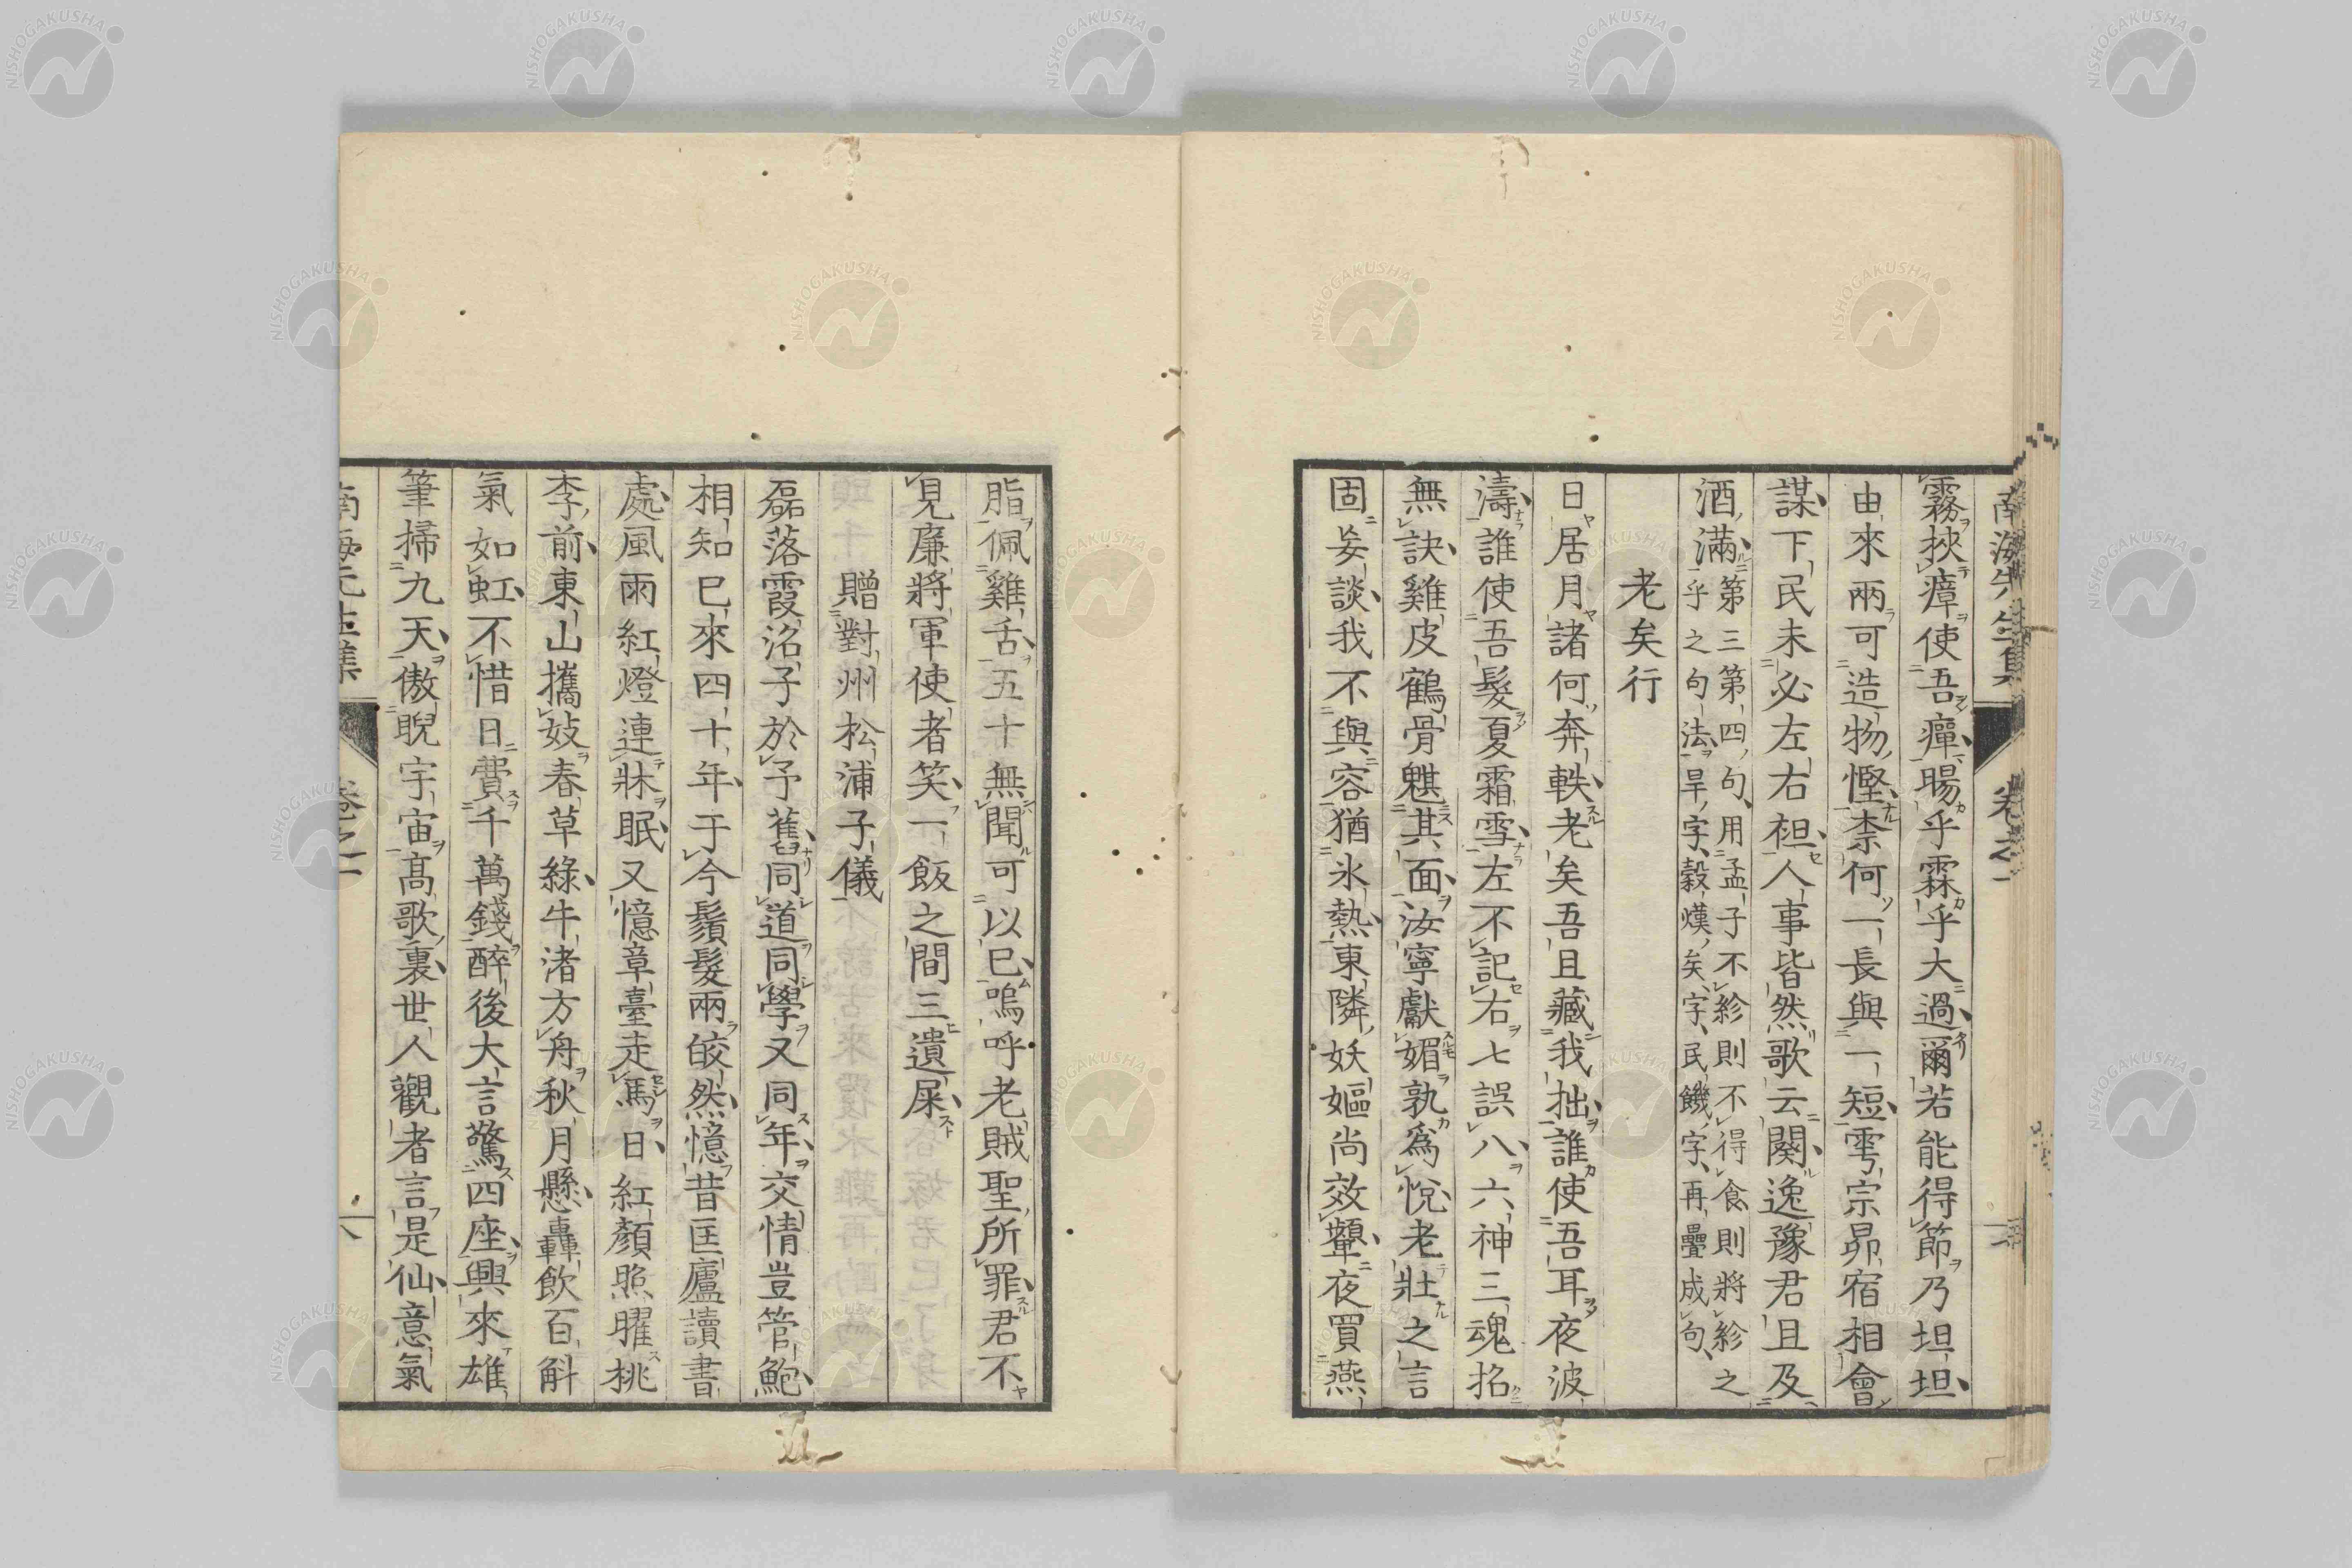 南海先生集 卷之一
霧挾瘴使吾癉暘乎霖乎大過爾若能得節乃坦坦
由來兩可造物慳柰何一長與一短雩宗昴宿相會
謀下民未必左右袒人事皆然歌云闋逸豫君且及
酒滿 第三第四句用孟子不紾則不得食則將紾之乎之句法旱字穀熯矣字民饑字再疊成句
老矣行
日居月諸何奔軼老矣吾且藏我拙誰使吾耳夜波
濤誰使吾髮夏霜雪左不記右七誤八六神三魂招
無訣雞皮鶴骨魌其面汝寧獻媚孰爲悅老壯之言
固妄談我不與容猶氷熱東隣妖嫗尚效顰夜買燕
脂佩雞舌五十無聞可以已嗚呼老賊聖所罪君不
見廉將軍使者笑一飯之間三遺屎
贈對州松浦子儀
磊落霞沼子於予舊同道同學又同年交情豈管鮑
相知已來四十年于今鬚髮兩皎然憶昔匡廬讀書
處風雨紅燈連牀眠又憶章臺走馬日紅顏照曜桃
李前東山攜妓春草綠牛渚方舟秋月懸轟飲百斛
氣如虹不惜日費千萬錢醉後大言驚四座興來雄
筆掃九天傲睨宇宙高歌裏世人觀者言是仙意氣
南海先生集 卷之一 八
NISHOGAKUSHA